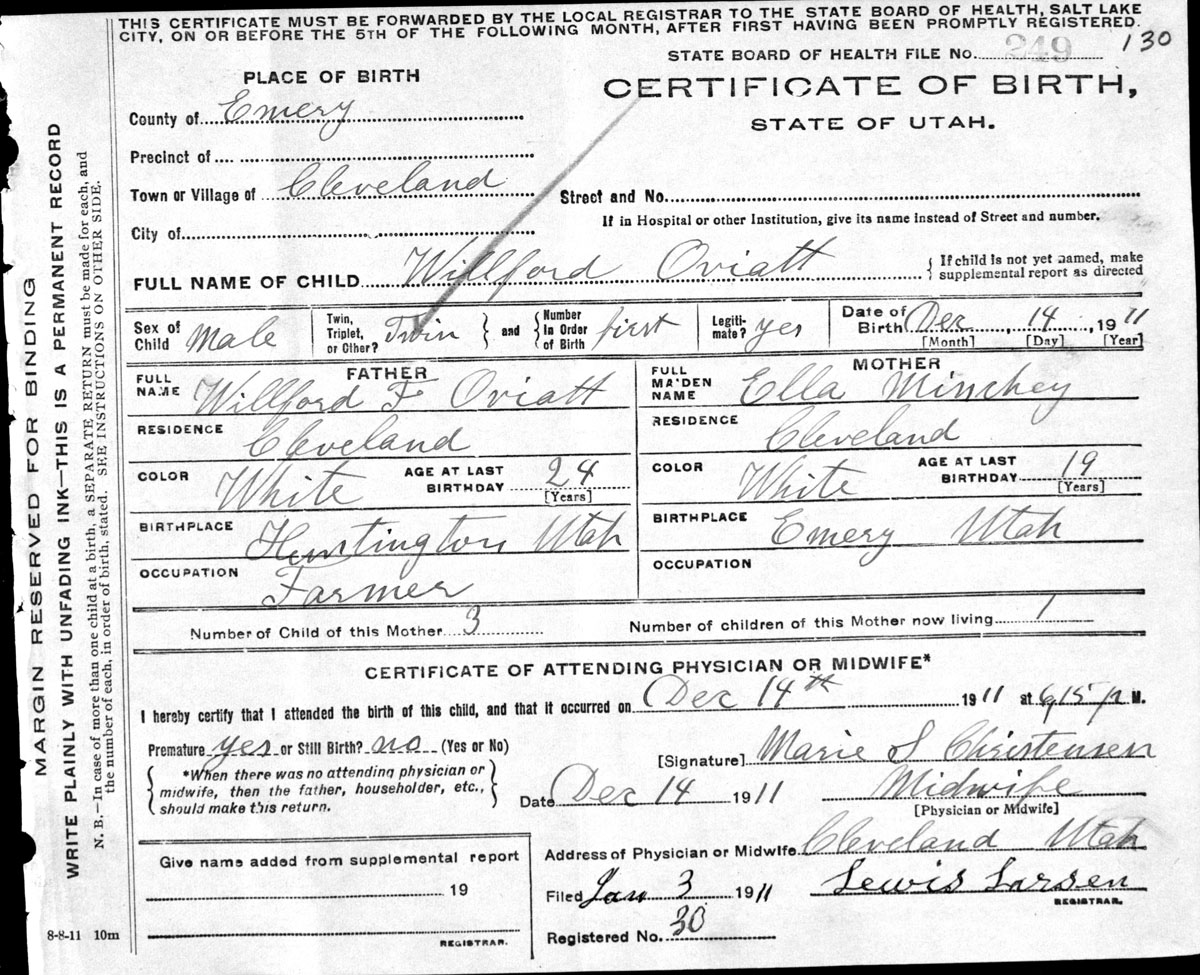 THIS CERTIFICATE MUST BE FORWARDED BY THE LOCAL REGISTRAR TO THE STATE BOARD OF HEALTH, SALT LAKE
CITY, ON OR BEFORE THE 5TH OF THE FOLLOWING MONTH, AFTER FIRST HAVING BEEN PROMPTLY REGISTERED.
STATE BOARD OF HEALTH FILE No. 249 130
PLACE OF BIRTH
CERTIFICATE OF BIRTH,
STATE OF UTAH.
County of Emery
Precinct of
Town or Village of Cleveland
Street and No.
If in Hospital or other Institution, give its name instead of Street and number.
City of
FULL NAME OF CHILD Willford Oviatt
{ If child is not yet named, make
supplemental report as directed
Sex of Child Male
Twin, Triplet, or Other? Twin } and { Number In Order of Birth first
Legitimate? yes
Date of Birth Dec, 14, 1911
[Month] [Day] [Year]
FATHER
FULL NAME Willford F Oviatt
RESIDENCE Cleveland
COLOR White AGE AT LAST BIRTHDAY 24 [Years]
BIRTHPLACE Huntington Utah
OCCUPATION Farmer
MOTHER
FULL MAIDEN NAME Ella Minchey
RESIDENCE Cleveland
COLOR White AGE AT LAST BIRTHDAY 19 [Years]
BIRTHPLACE Emery Utah
OCCUPATION
Number of Child of this Mother 3 Number of children of this Mother now living 1
CERTIFICATE OF ATTENDING PHYSICIAN OR MIDWIFE*
I hereby certify that I attended the birth of this child, and that it occurred on Dec 14th 1911 at 6,15 p M.
Premature yes or Still Birth? no (Yes or No)
{ *When there was no attending physician or
midwife, then the father, householder, etc.,
should make this return. }
[Signature] Marie S Christensen
Date Dec 14 1911 Midwife
[Physician or Midwife]
Give name added from supplemental report
19
REGISTRAR.
Address of Physician or Midwife Cleveland Utah
Filed Jan 3 1911 Lewis Larsen
REGISTRAR.
Registered No. 30
8-8-11 10m
MARGIN RESERVED FOR BINDING
WRITE PLAINLY WITH UNFADING INK—THIS IS A PERMANENT RECORD
N. B.—In case of more than one child at a birth, a SEPARATE RETURN must be made for each, and
the number of each, in order of birth, stated. SEE INSTRUCTIONS ON OTHER SIDE.